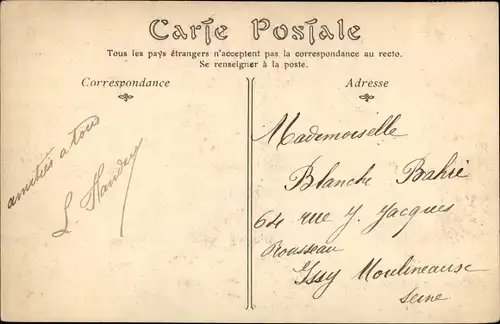 Carte Postale
Tous les pays étrangers n'acceptent pas la correspondance au recto.
Se renseigner à la poste.
Correspondance
amitiés a tous
L.
Adresse
Mademoiselle
Blanche Bahié
64 rue J. Jacques
Rousseau
Issy Moulineausc
Seine